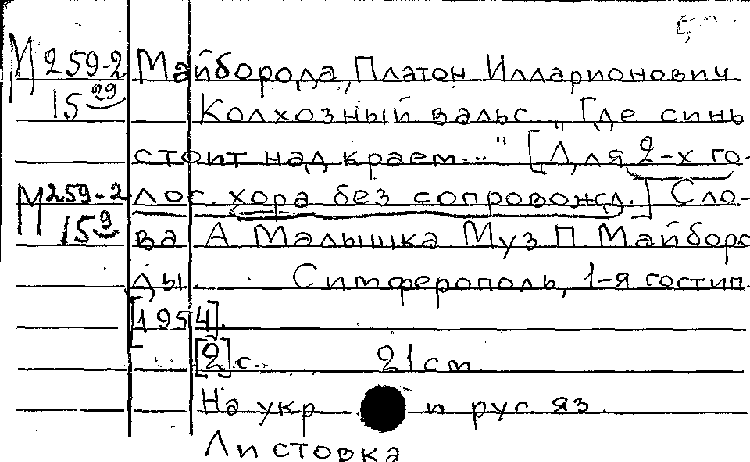 М 259-2 Майборода, Платон Илларионович
15 29 Колхозный вальс „Где синь
стоит над краем..." [Для 2-х го-
М 259-2 лос. хора без сопровожд.] Сло-
15 9 ва А Малышка Муз П Майборо
ды Симферополь, 1-я гостип
[1954].
[2] с. 21 см
На укр и рус яз.
Листовка